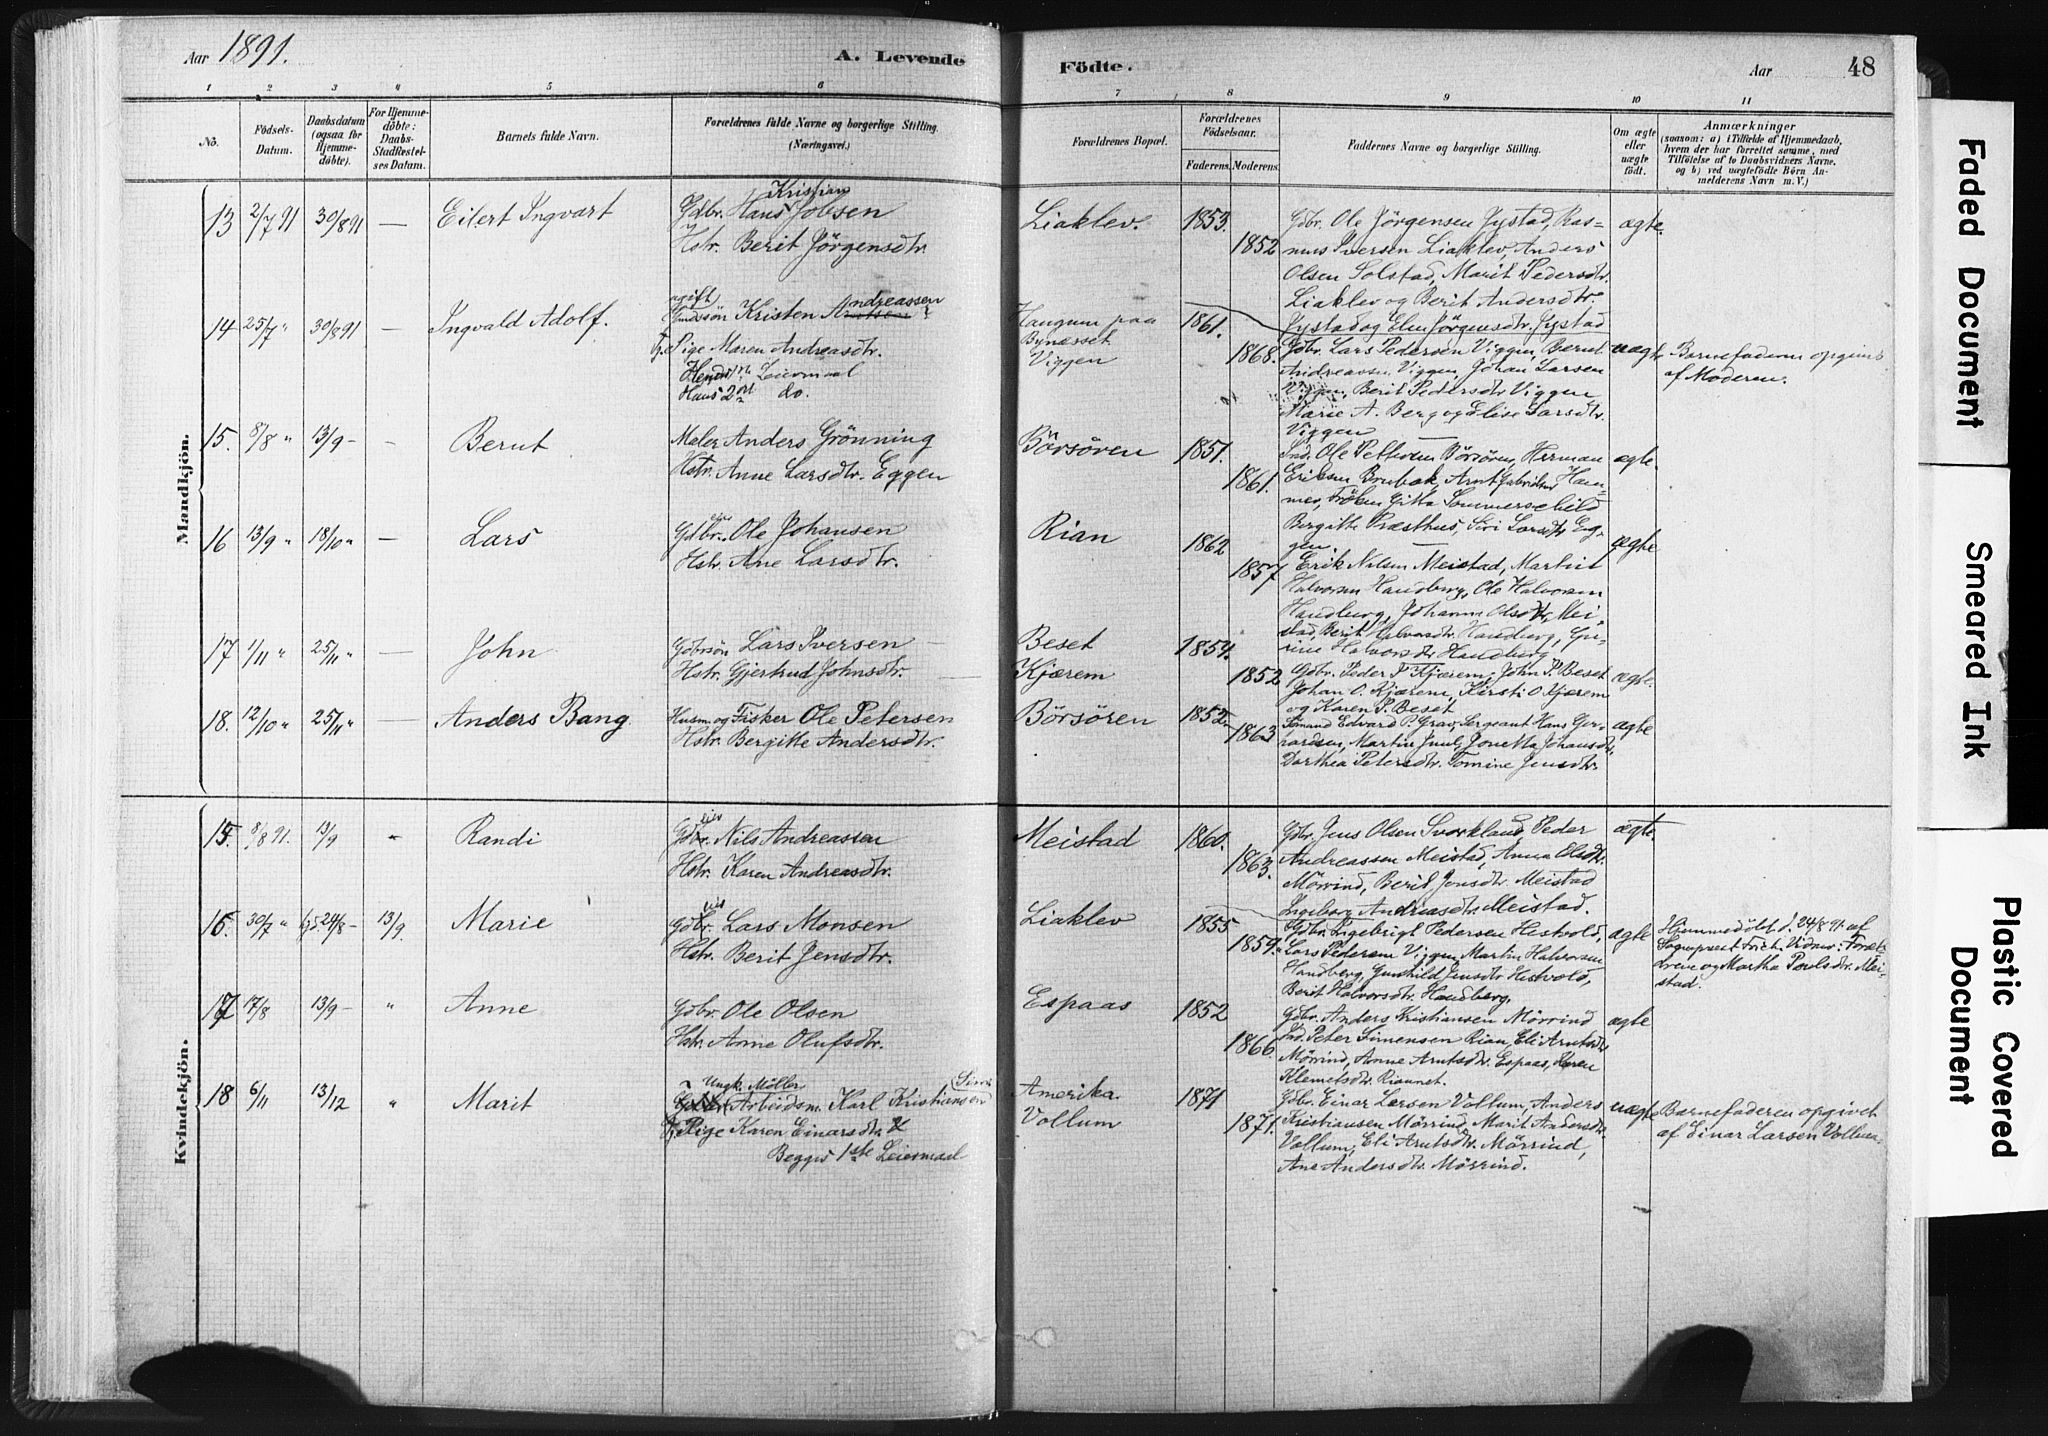 Aar 1891.
A. Levende
Födte.
Aar
48
1 2 3 4 5 6 7 8 9 10 11
No.
Födsels-
Datum.
Daabsdatum
(ogsaa for
Hjemme-
döbte).
For Hjemme-
döbte:
Daabs-
Stadfæstel-
ses Datum.
Barnets fulde Navn.
Forældrenes fulde Navne og borgerlige Stilling.
(Næringsvei.)
Forældrenes Bopæl.
Forældrenes
Födselsaar.
Faderens. Moderens.
Faddernes Navne og borgerlige Stilling.
Om ægte
eller
uægte
födt.
Anmærkninger
(saasom: a) i Tilfælde af Hjemmedaab,
hvem der har forrettet samme, med
Tilföielse af to Daabsvidners Navne,
og b) ved uægtefödte Börn An-
melderens Navn m. V.)
Mandkjön.
13 2/7 91 30/8 91 — Eilert Ingvart
Kristian
Gdbr. Hans Jobsen
Hstr. Berit Jörgensdtr.
Liaklev. 1853. 1852
Gdbr. Ole Jörgensen Jystad, Ras-
mus Iversen Liaklev, Anders
Olsen Solstad, Marit Pedersdtr.
Liaklev og Berit Andersdtr.
Jystad og Elen Jörgensdtr. Jystad
ægte.
14 25/7 " 30/8 91 — Ingvald Adolf.
ugift Andreassen
Kristen
Pige Maren Andreasdtr.
Leiermaal
Hans 2det do.
Haugum paa
Bynæsset
Viggen
1861. 1868.
Gdbr. Lars Pedersen Viggen, Berut
Andreassen Viggen, Johan Larsen
Viggen, Berit Pedersdtr Viggen
Marie A. Berg og Elise Larsdtr.
Viggen
uægte
Barnefaderen opgiven
af Moderen.
15. 8/8 " 13/9 — - Berut
Maler Anders Grönning
Hstr. Anne Larsdtr. Eggen
Börsören 1851. 1861.
Ind. Ole Pettersen Börsören, Herman
Eriksen Brubak, Arnt Gabrielsen Ham-
mer, Fröken Gitta Sommerschild
Bergitte Præsthus, Siri Larsdtr Eg-
gen.
ægte.
16 13/9 " 18/10 " — Lars
Gdbr. Ole Johansen
Hstr. Ane Larsdtr.
Rian 1862 1857
Erik Nilsen Meistad, Martin
Halvorsen Haudberg, Ole Halvorsen
Haudberg, Johanna Olsdtr. Mei-
stad, Berit Halvorsdtr. Haudberg, Gu-
rine Halvorsdtr Haudberg
ægte
17 1/11 " 25/11 " — John
Gdbrsön Lars Iversen
Hstr. Gjertrud Johnsdtr.
Beset
Kjærem
1854. 1852
Gdbr. Peder P Kjærem, John P. Beset
Johan O. Kjærem, Kirsti O Kjærem
og Karen P. Beset
ægte.
18. 12/10 " 25/11 " — Anders Bang
Husm. og Fisker Ole Petersen
Hstr. Bergitte Andersdtr.
Börsören 1852 1863
Sömand Edvard P. Grav, Sergeant Hans Ger-
hardsen, Martin Juul, Jonetta Johansdtr,
Dorthea Petersdtr. Tomine Jensdtr.
ægte
Kvindekjön.
15. 8/8 91. 13/9 " Randi
eier
Gdbr. Nils Andreassen
Hstr. Karen Andreasdtr.
Meistad 1860. 1863.
Gdbr. Jens Olsen Svorkland, Peder
Andreassen Meistad, Anna Olsdtr.
Mörrind, Berit Jonsdtr. Meistad
Ingeborg Andreasdtr. Meistad.
ægte.
16. 30/7 " Hjd. 24/8 — 13/9. Marie
eier
Gdbr. Lars Monsen
Hstr. Berit Jensdtr.
Liaklev 1855 1859.
Gdbr. Ingebrigt Pedersen Hestvold,
Lars Pedersen Viggen, Martin Halvorsen
Haudberg, Gunhild Jensdtr Hestvold,
Berit Halvorsdtr. Haudberg.
ægte
Hjemmedöbt d. 24/8 91 af
Sognepræst Frich. Vidner: Foræl-
drene og Martha Paulsdtr. Mei-
stad.
17 17/8 13/9 — " Anne
Gdbr. Ole Olsen
Hstr. Anne Olufsdtr.
Espaas 1852 1866.
Gdbr. Anders Kristiansen Mörrind
Ind. Peter Simensen Rian, Eli Arntsdtr
Mörrind, Anne Arntsdtr. Espaas, Karen
Klemetsdtr. Riaunet.
ægte
18 6/11 13/12 " Marit
Ungk. Möller
Arbeidsm. Karl Kristiansen
Pige Karen Einarsdtr.
Begges 1ste Leiermaal
Amerika.
Vollum
1871 1871.
Gdbr. Einar Larsen Vollum, Anders
Kristiansen Mörrind, Marit Andersdtr.
Vollum, Eli Arntsdtr. Mörrind,
Ane Andersdtr. Mörrind.
uægte
Barnefaderen opgivet
af Einar Larsen Vollum.
Faded Document
Smeared Ink
Plastic Covered
Document